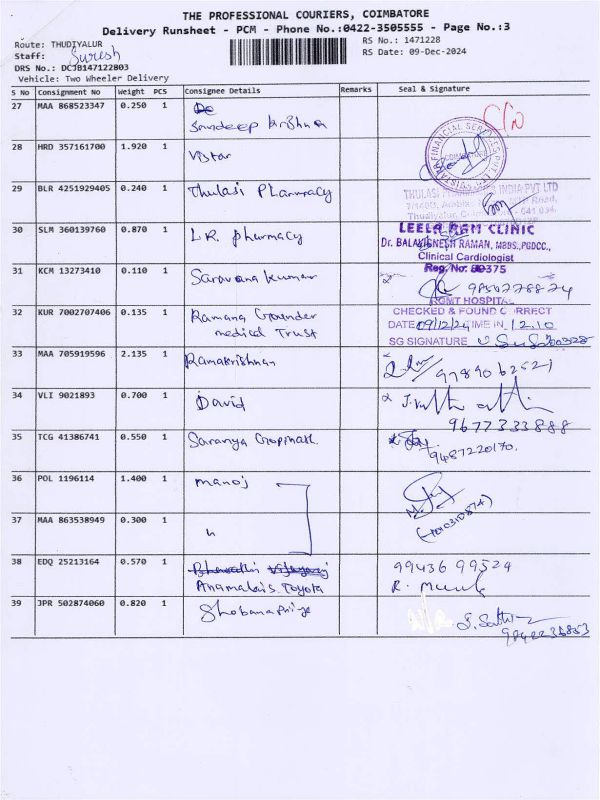 THE PROFESSIONAL COURIERS, COIMBATORE
Delivery Runsheet - PCM - Phone No.:0422-3505555 - Page No.:3
Route: THUDIYALUR
RS No.: 1471228
Staff: Suresh
RS Date: 09-Dec-2024
DRS No.: DCJB147122803
Vehicle: Two Wheeler Delivery
S No Consignment No Weight PCS Consignee Details Remarks Seal & Signature
27 MAA 868523347 0.250 1
Sandeep Krishna
28 HRD 357161700 1.920 1 Vistar
29 BLR 4251929405 0.240 1 Thulasi Pharmacy
THULASI INDIA PVT LTD
30 SLM 360139760 0.870 1 L.R. pharmacy
LEELA RGM CLINIC
Dr. BALAVIGNESH RAMAN, MBBS.,PGDCC.,
Clinical Cardiologist
31 KCM 13273410 0.110 1 Saravana kumar
32 KUR 7002707406 0.135 1 Ramana Gounder
medical Trust
RGMT HOSPITAL
CHECKED & FOUND CORRECT
DATE 09/12/24 TIME IN 12.10
SG SIGNATURE
33 MAA 705919596 2.135 1 Ramakrishnan
34 VLI 9021893 0.700 1 David
9677333888
35 TCG 41386741 0.550 1 Saranya Gopinath
9487220170.
36 POL 1196114 1.400 1 manoj
37 MAA 863538949 0.300 1 "
38 EDQ 25213164 0.570 1
Anamalais Toyota
9943699524
39 JPR 502874060 0.820 1 Shobanapriya